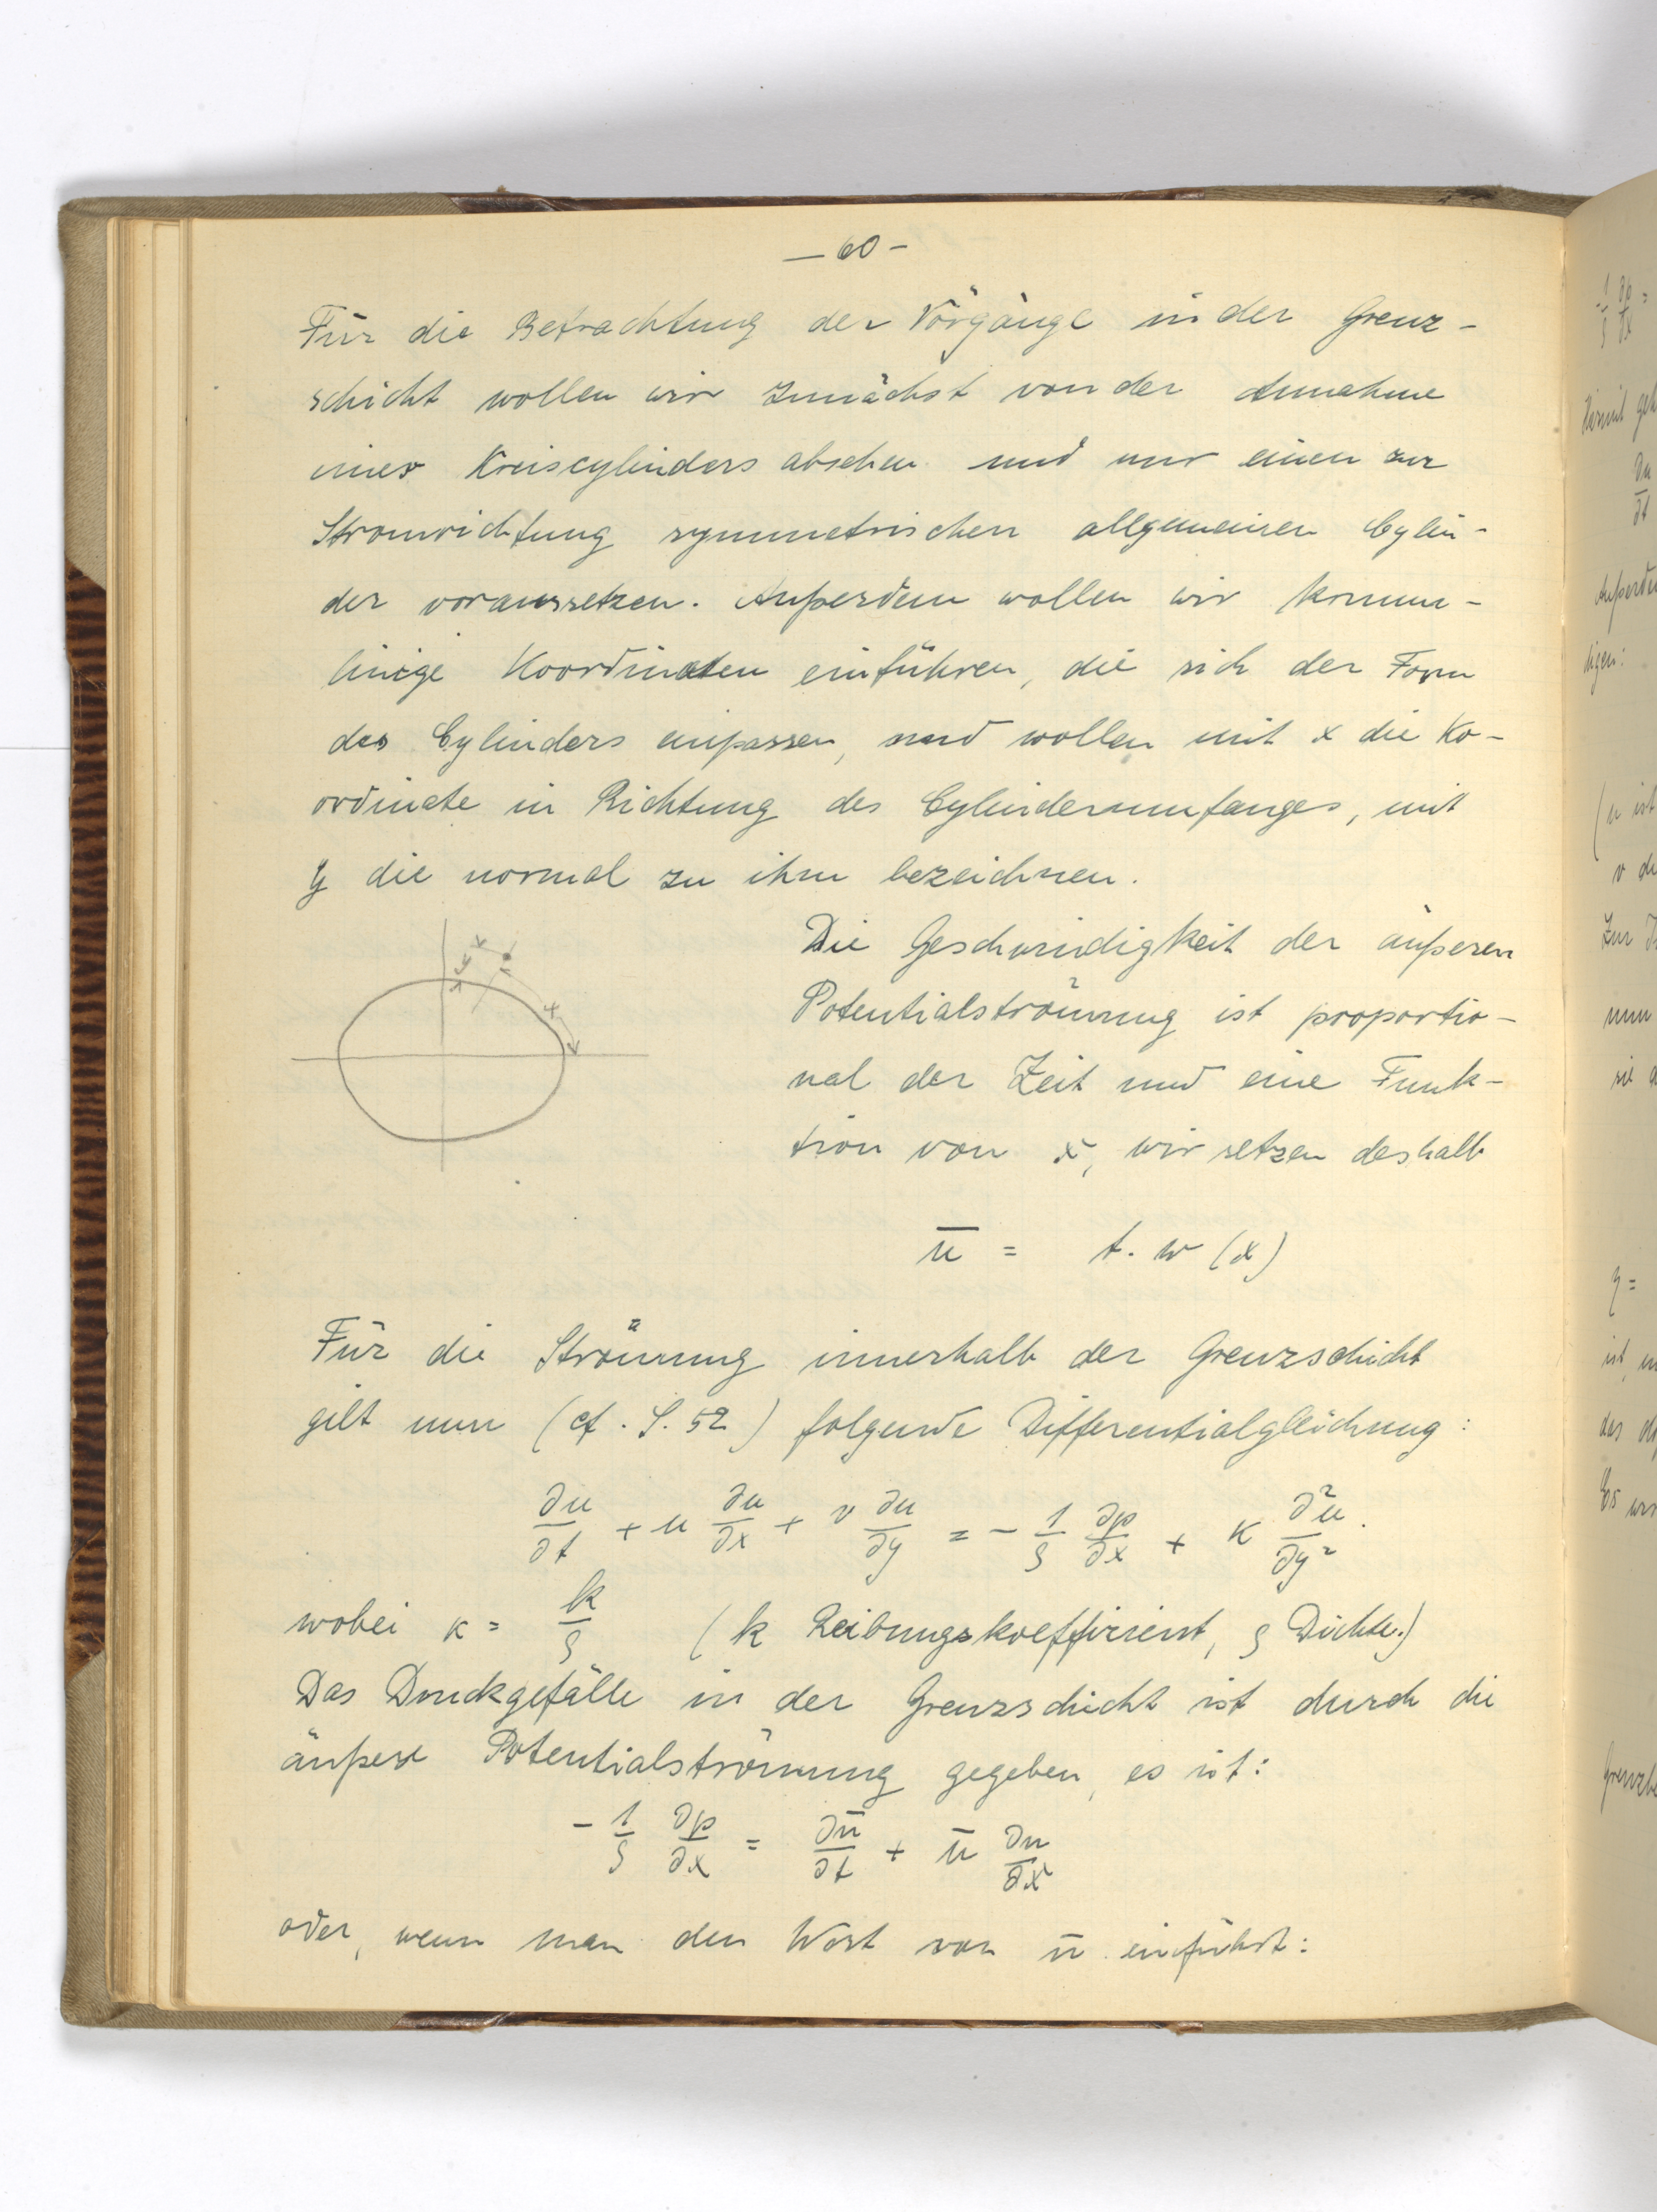 – 60 –
Für die Betrachtung der Vorgänge in der Grenz-
schicht wollen wir zunächst von der Annahme
eines Kreiscylinders absehen und nur einen zur
Stromrichtung symmetrischen allgemeinen Cylin-
der voraussetzen. Außerdem wollen wir krumm-
linige Koordinaten einführen, die sich der Form
des Cylinders anpassen, und wollen mit x die Ko-
ordinate in Richtung des Cylinderumfanges, mit
y die normal zu ihm bezeichnen.
Die Geschwindigkeit der äußeren
Potentialströmung ist proportio-
nal der Zeit und eine Funk-
tion von x, wir setzen deshalb
ū = t. w (x)
Für die Strömung innerhalb der Grenzschicht
gilt nun (cf. S. 52) folgende Differentialgleichung:
∂u/∂t + u ∂u/∂x + v ∂u/∂y = - 1/ρ ∂p/∂x + κ ∂²u/∂y².
wobei κ = k/ρ (k Reibungskoeffizient, ρ Dichte.)
Das Druckgefälle in der Grenzschicht ist durch die
äußere Potentialströmung gegeben, es ist:
- 1/ρ ∂p/∂x = ∂ū/∂t + ū ∂u/∂x
oder, wenn man den Wert von ū einführt: